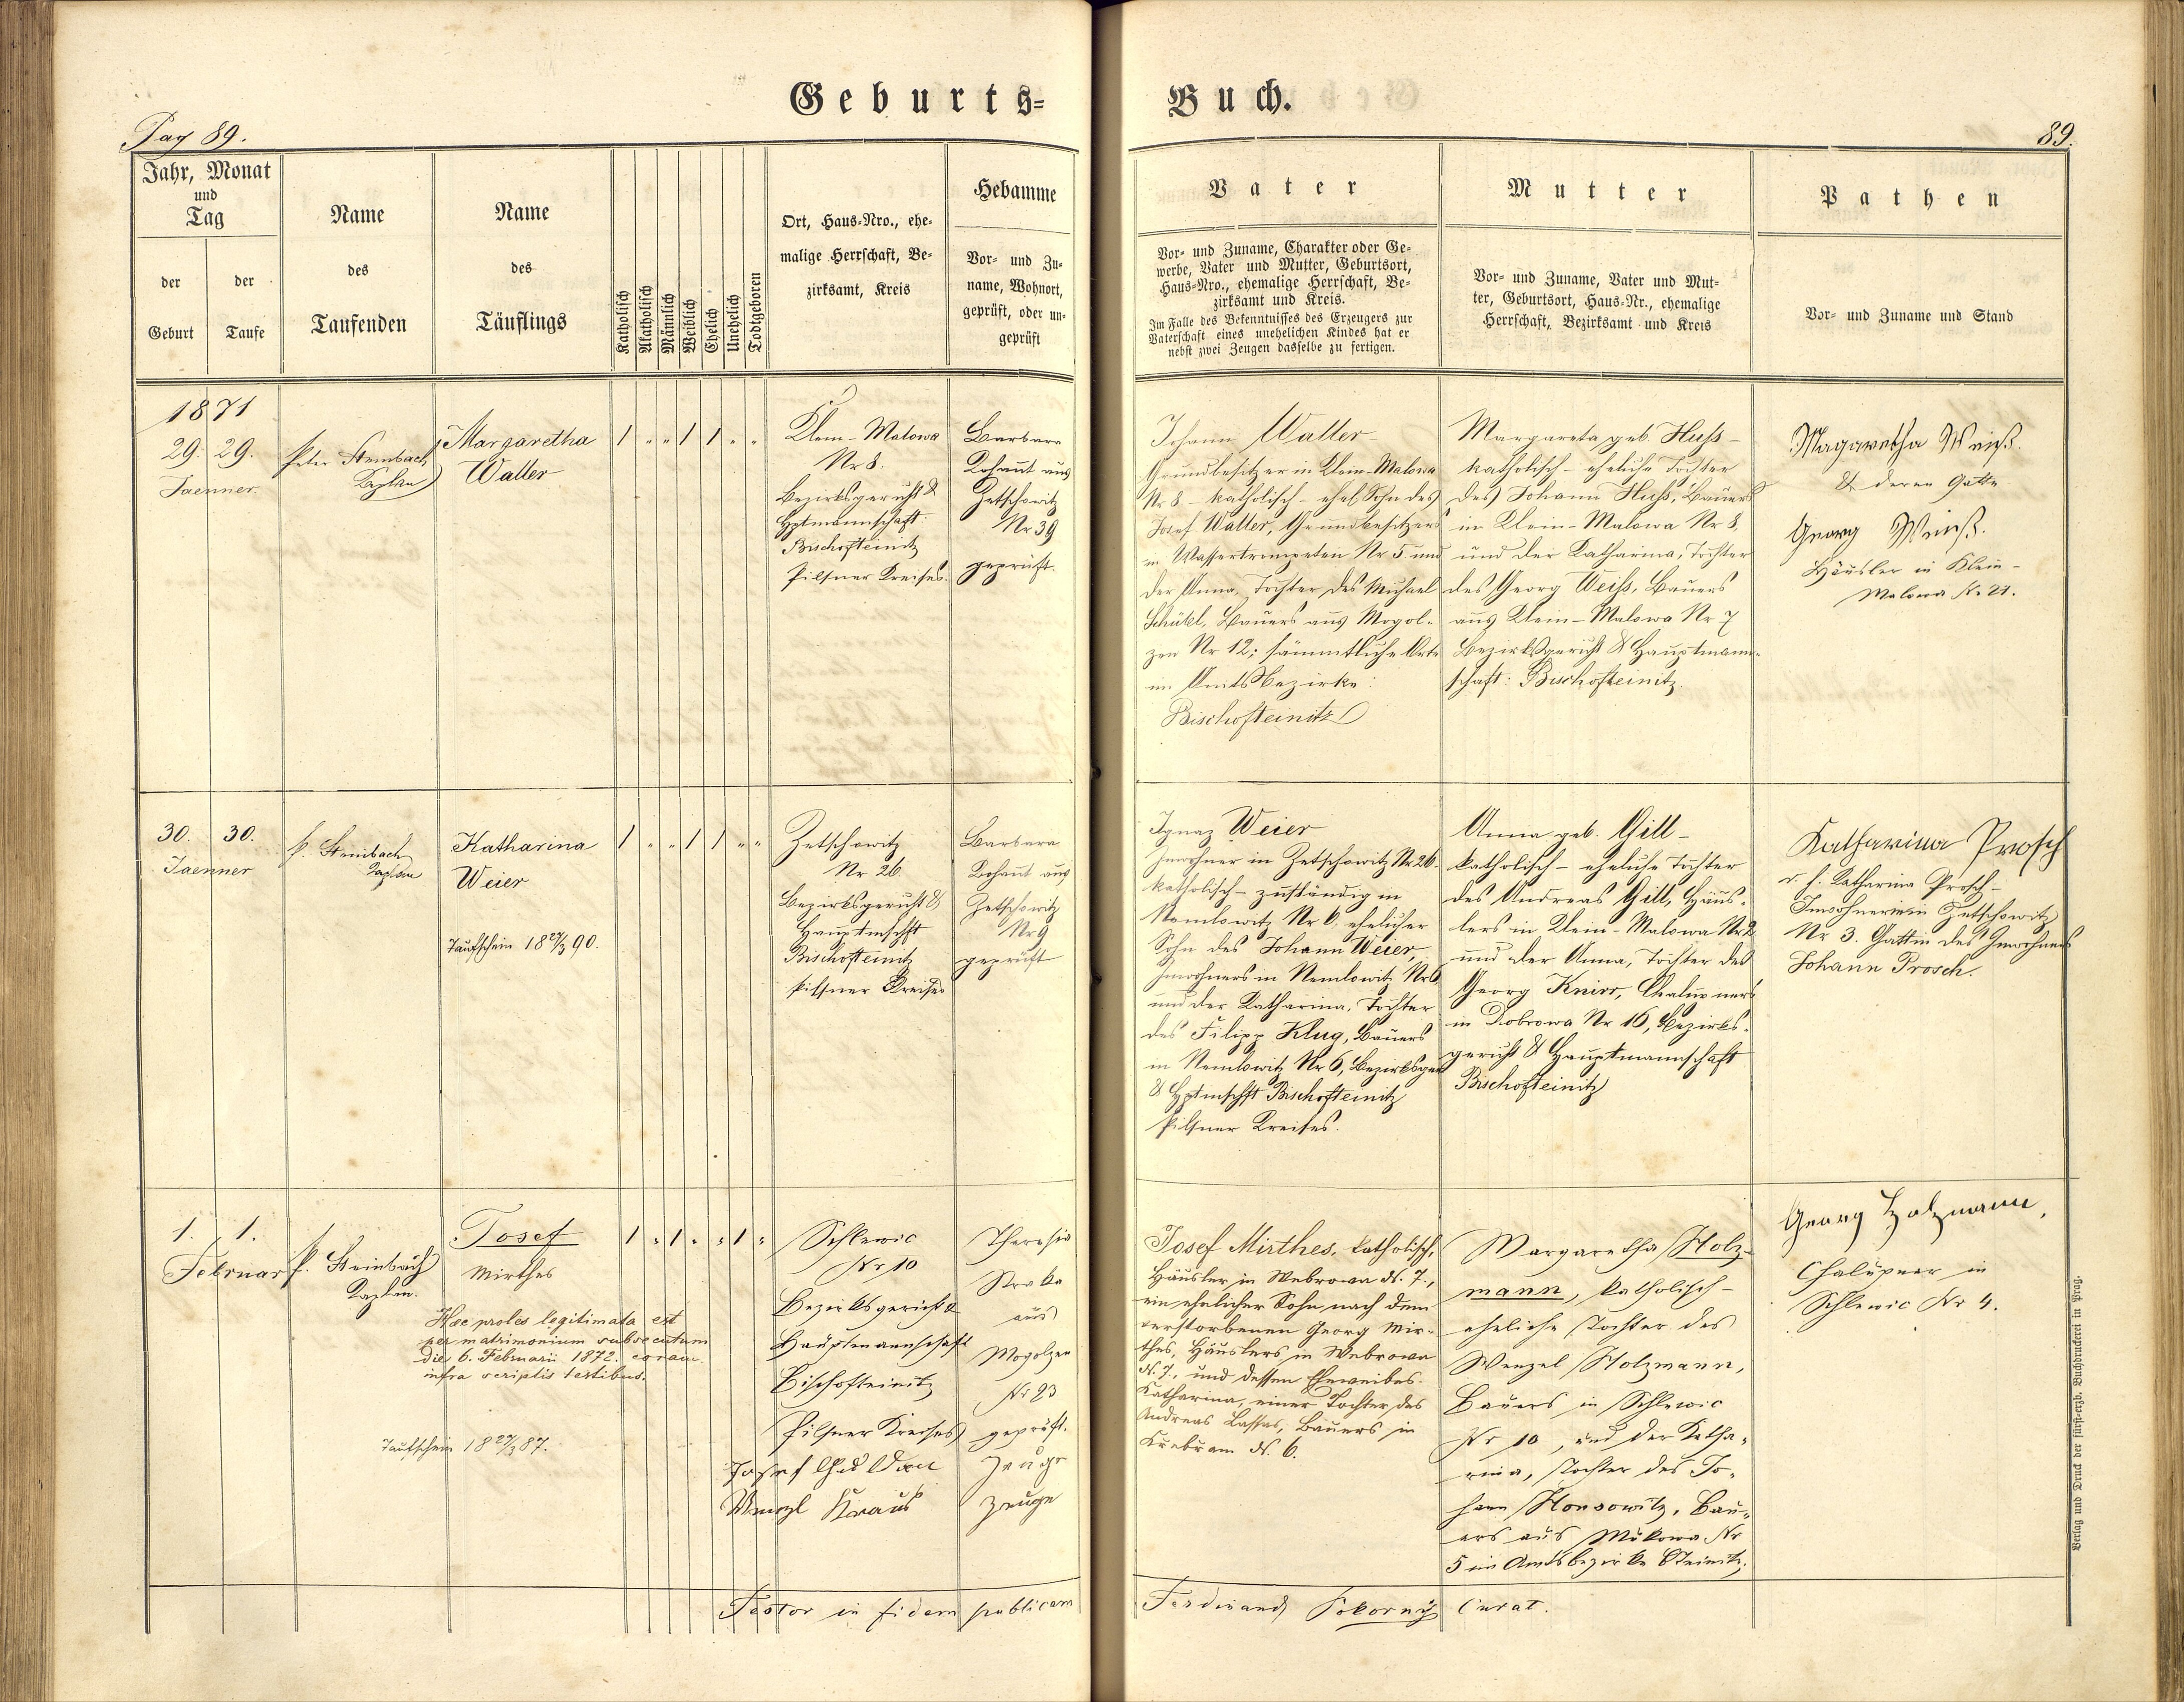 Geburts-
Buch.
Pag 89.
89.
Jahr, Monat
und
Tag
der
Geburt
der
Taufe
Name
des
Taufenden
Name
des
Täuflings
Katholisch
Akatholisch
Männlich
Weiblich
Ehelich
Unehelich
Todtgeboren
Ort, Haus-Nro., ehe-
malige Herrschaft, Be-
zirksamt, Kreis
Hebamme
Vor- und Zu-
name, Wohnort,
geprüft, oder un-
geprüft
Vater
Vor- und Zuname, Charakter oder Ge-
werbe, Vater und Mutter, Geburtsort,
Haus-Nro., ehemalige Herrschaft, Be-
zirksamt und Kreis.
Im Falle des Bekenntnisses des Erzeugers zur
Vaterschaft eines unehelichen Kindes hat er
nebst zwei Zeugen dasselbe zu fertigen.
Mutter
Vor- und Zuname, Vater und Mut-
ter, Geburtsort, Haus-Nr., ehemalige
Herrschaft, Bezirksamt und Kreis
Pathen
Vor- und Zuname und Stand
1871
29. 29.
Jaenner
Peter Steinbach
Kaplan
Margaretha
Walter
1 " " 1 1 " "
Klein-Malowa
Nr 8.
Bezirksgericht &
Hptmannschaft:
Bischofteinitz
Pilsner Kreises.
Barbara
Bohaut aus
Zetschowitz
Nr 39
geprüft.
Johann Walter
Grundbesitzer in Klein-Malowa
Nr 8 - katholisch - ehel. Sohn des
Josef Walter, Grundbesitzers
in Wassertrompeten Nr 5. und
der Anna, Tochter des Michael
Schübl, Bauers aus Mogol-
zen Nr 12; sämmtliche Orte
im Amtsbezirke:
Bischofteinitz
Margareta geb. Huss -
katholisch - eheliche Tochter
des Johann Huss, Bauers
in Klein-Malowa Nr 8,
und der Katharina, Tochter
des Georg Weiss, Bauers
aus Klein-Malowa Nr 7
Bezirksgericht & Hauptmann-
schaft: Bischofteinitz.
Magaretha Weiß.
& deren Gatte
Georg Weiß.
Häusler in Klein-
Malowa Nr 21.
30. 30.
Jaenner
P. Steinbach
Kaplan
Katharina
Weier
Taufschein 18 27/3 90.
1 " " 1 1 " "
Zetschowitz
Nr 26
Bezirksgericht &
Hauptmschft
Bischofteinitz
Pilsner Kreises
Barbara
Bohaut aus
Zetschowitz
Nr 9
geprüft
Ignaz Weier
Inwohner in Zetschowitz Nr 26.
katholisch - zuständig in
Nemlowitz Nr 6, ehelicher
Sohn des Johann Weier,
Inwohners in Nemlowitz Nr 6
und der Katharina, Tochter
des Filipp Klug, Bauers
in Nemlowitz Nr 6, Bezirksger
& Hptmschft Bischofteinitz
Pilsner Kreises.
Anna geb. Gill -
katholisch - eheliche Tochter
des Andreas Gill, Häus-
lers in Klein-Malowa Nr 2
und der Anna, Tochter des
Georg Knirr, Chalupners
in Dobrowa Nr 16, Bezirks-
gericht & Hauptmannschaft
Bischofteinitz
Katharina Prosch
v. h. Katharina Prosch -
Inwohnerin in Zetschowitz
Nr 3. Gattin des Inwohners
Johann Prosch.
1. 1.
Februar
P. Steinbach
Kaplan.
Josef
Mirthes
Hæc proles legitimata est
per matrimonium subsecutum
die 6. Februarii 1872. coram
infra scriptis testibus.
Taufschein 18 27/3 87.
1 " 1 " " 1 "
Schlewic
Nr 10
Bezirksgericht &
Hauptmannschaft
Bischofteinitz
Pilsner Kreises
Josef
Wenzl Kraus
Theresia
Straka
aus
Mogolzen
Nr 23
geprüft.
Zeuge
Zeuge
Josef Mirthes, katholisch,
Häusler in Webrowa N. 7.,
ein ehelicher Sohn nach dem
verstorbenen Georg Mir-
thes, Häuslers in Webrowa
N. 7., und dessen Eheweibes
Katharina, einer Tochter des
Andreas Lassas, Bauers in
Krebram N. 6.
Margaretha Holz-
mann, katholisch -
eheliche Tochter des
Wenzel Holzmann,
Bauers in Schlewic
Nr 10, und der Katha-
rina, Tochter des Jo-
hann Honsowitz, Bau-
ers aus Mukowa Nr
5 im Amtsbezirke Teinitz.
Georg Holzmann,
Chalupner in
Schlewic Nr 4.
Testor in fidem publicam
Ferdinand Pokorny Curat.
Verlag und Druck der fürst-erzb. Buchdruckerei in Prag.